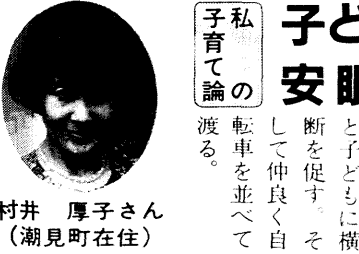 子ど
安眠
私の
子育て論
と子どもに横
断を促す。そ
して仲良く自
転車を並べて
渡る。
村井 厚子さん
（潮見町在住）